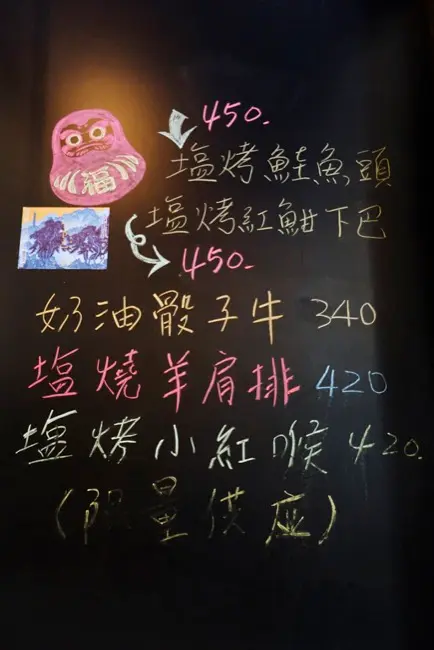 450.
塩烤鮭魚頭
福
塩烤紅魽下巴
450.
奶油骰子牛 340
塩燒羊肩排 420
塩烤小紅喉 420.
(限量供应)